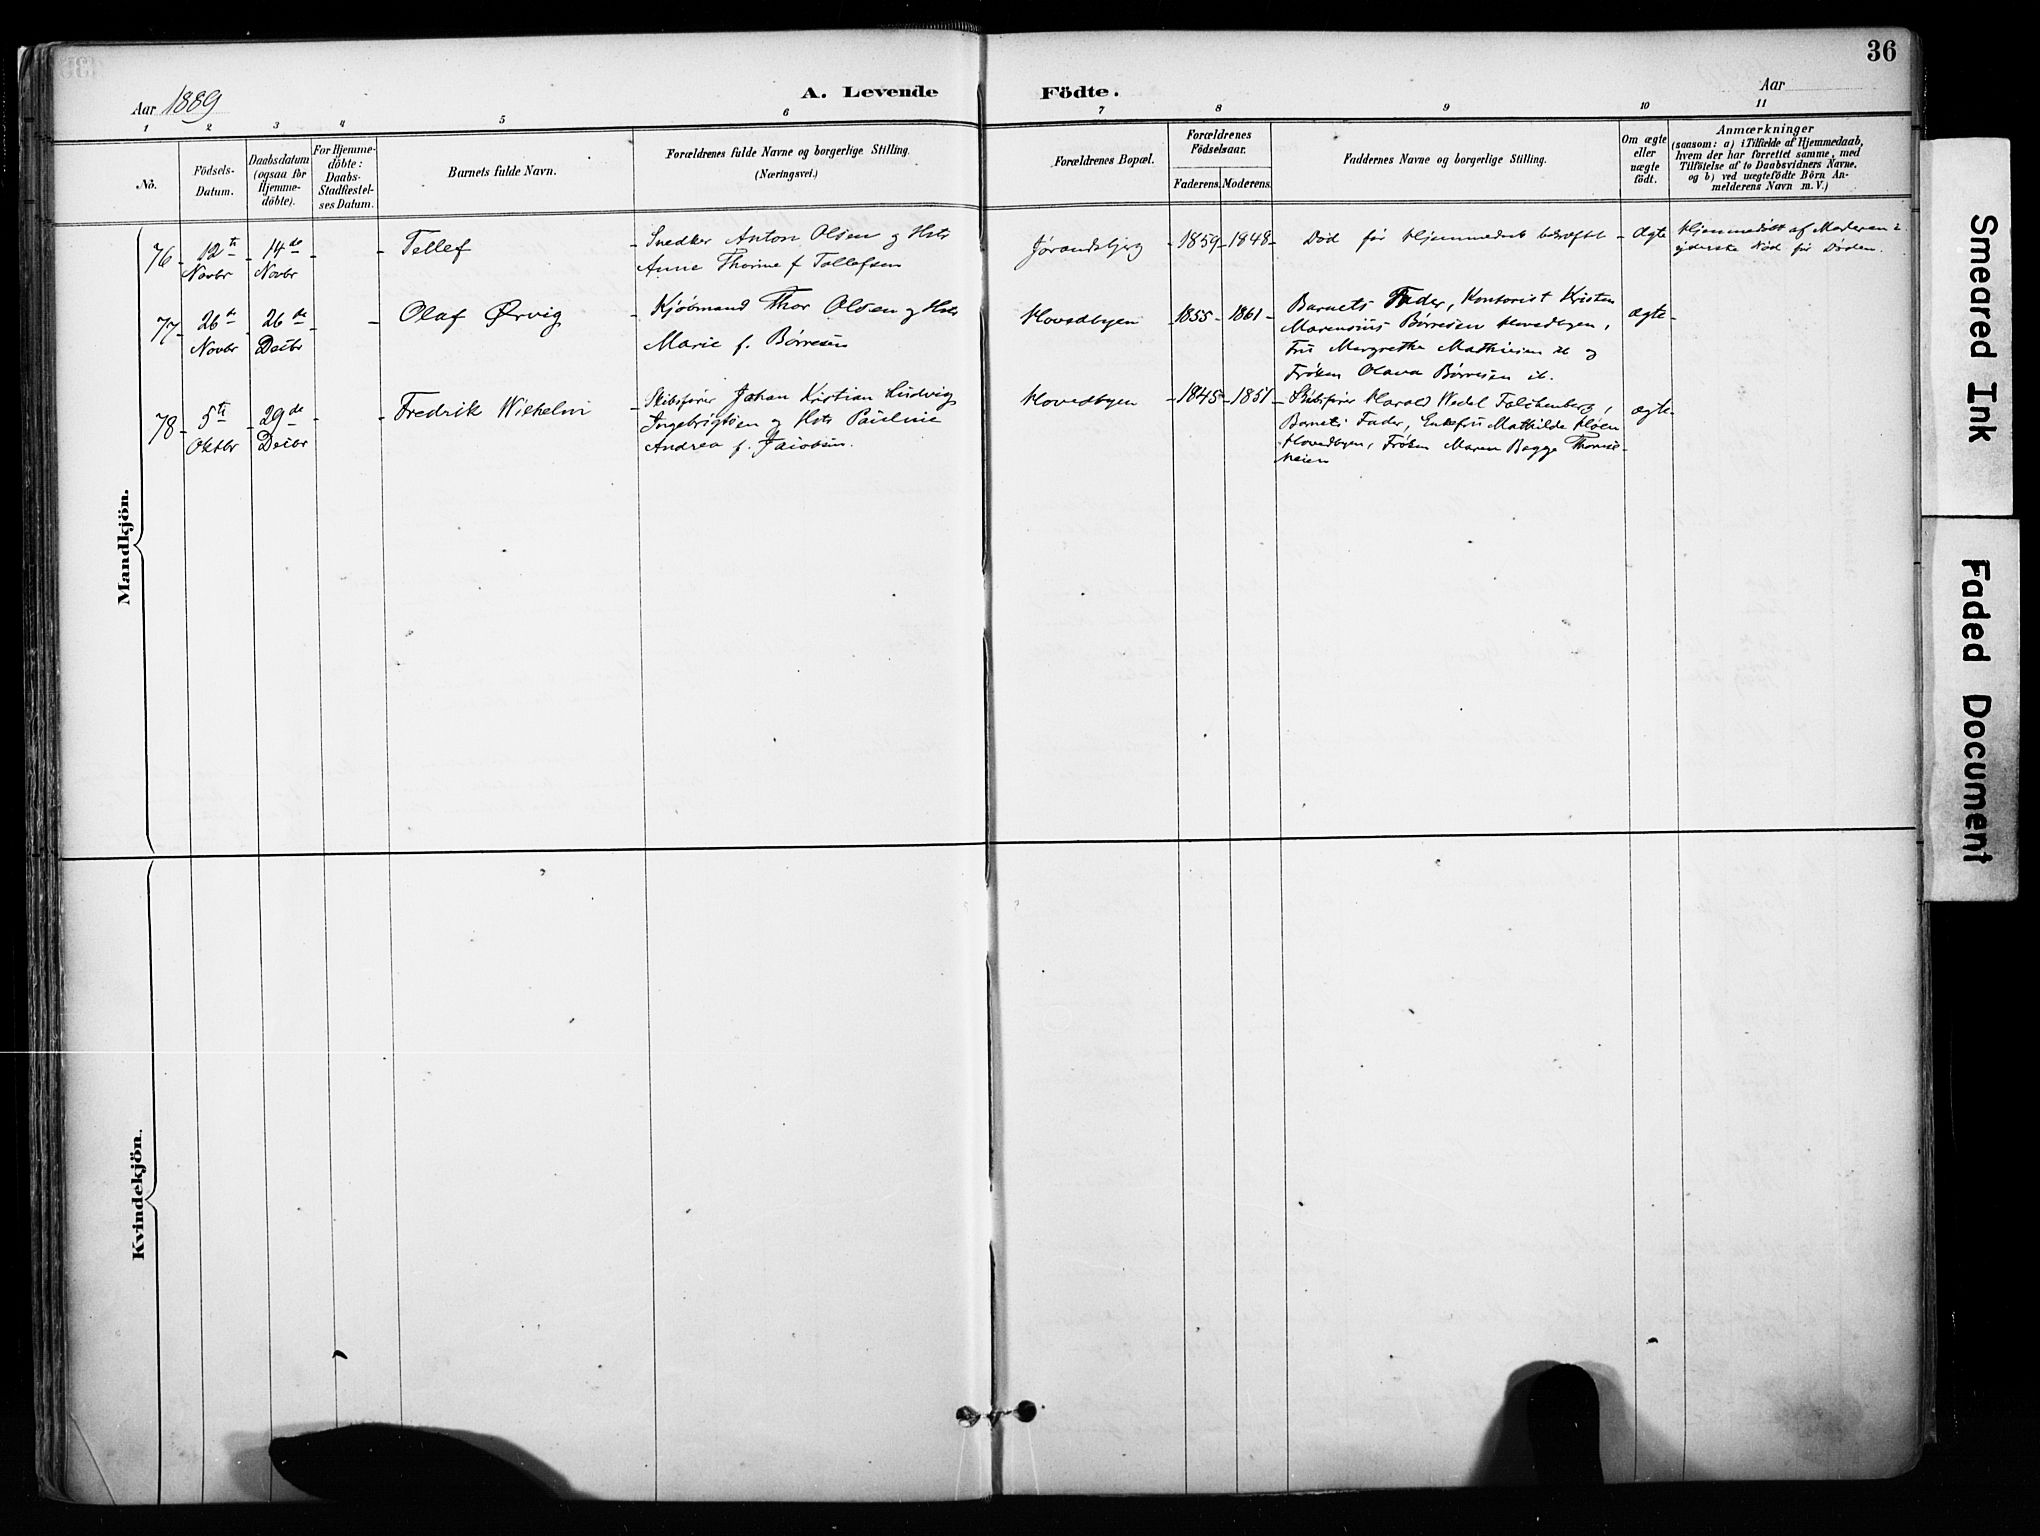 36
Aar 1889
A. Levende Födte.
Aar
1 2 3 4 5 6 7 8 9 10 11
No.
Födsels-
Datum.
Daabsdatum
(ogsaa for
Hjemme-
döbte).
For Hjemme-
döbte:
Daabs-
Stadfæstel-
ses Datum.
Barnets fulde Navn.
Forældrenes fulde Navne og borgerlige Stilling.
(Næringsvei.)
Forældrenes Bopæl.
Forældrenes
Födselsaar.
Faderens. Moderens.
Faddernes Navne og borgerlige Stilling.
Om ægte
eller
uægte
födt.
Anmærkninger
(saasom: a) i Tilfælde af Hjemmedaab,
hvem der har forrettet samme, med
Tilföielse af to Daabsvidners Navne.
og b) ved uægtefödte Börn An-
melderens Navn m.V.)
Mandkjön.
76 12te Novbr 14de Novbr Tellef
Snedker Anton Olsen og Hstr
Anne Thorine f Tollefsen
Jørandsbjerg 1859 1848
Død før Hjemmedaab bekræftet
Ægte
Hjemmedøbt af Moderen i
yderste Nød før Døden.
77 26de Novbr 26de Decbr Olaf Ørvig
Kjöbmand Thor Olsen og Hstr
Marie f. Børresen
Hovedbyen 1855 1861
Barnets Fader, Kontorist Kristen
Marensius Børresen Hovedbyen,
Fru Margrethe Mathiesen ib og
Frøken Olava Børresen ib.
ægte
78 5te Oktbr 29de Decbr Fredrik Wilhelm
Skibsfører Johan Kristian Ludvig
Ingebrigtsen og Hstr Pauline
Andrea f. Jacobsen.
Hovedbyen 1845 1851
Skibsfører Harald Wedel Falchenberg,
Barnets Fader, Enkefru Mathilde
Hovedbyen, Frøken Maren Bagge
ægte
Kvindekjön.
Smeared Ink
Faded Document